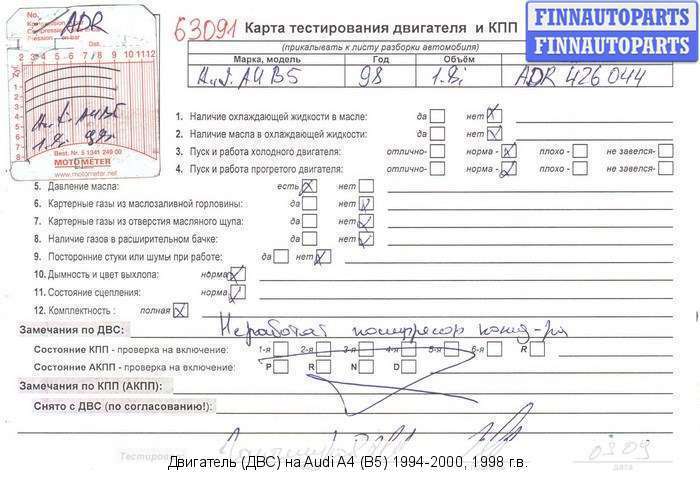 No.
ADR
Dat.
2 3 4 5 6 7 8 9 10 11 12
Best. Nr. 5 1341 249 00
MOTOMETER
www.motometer.net
63091 Карта тестирования двигателя и КПП
(прикалывать к листу разборки автомобиля)
FINNAUTOPARTS
FINNAUTOPARTS
Марка, модель Год Объём
A4 B5 98 1.8i ADR 426 044
1. Наличие охлаждающей жидкости в масле: да нет
2. Наличие масла в охлаждающей жидкости: да нет
3. Пуск и работа холодного двигателя: отлично- норма - плохо - не завелся-
4. Пуск и работа прогретого двигателя: отлично- норма - плохо - не завелся-
5. Давление масла: есть нет
6. Картерные газы из маслозаливной горловины: да нет
7. Картерные газы из отверстия масляного щупа: да нет
8. Наличие газов в расширительном бачке: да нет
9. Посторонние стуки или шумы при работе: да нет
10. Дымность и цвет выхлопа: норма
11. Состояние сцепления: норма
12. Комплектность : полная
Замечания по ДВС: Не работает компрессор
Состояние КПП - проверка на включение: 1-я 2-я 3-я 4-я 5-я 6-я R
Состояние АКПП - проверка на включение: P R N D
Замечания по КПП (АКПП):
Снято с ДВС (по согласованию!):
Тестировал
0309
дата
Двигатель (ДВС) на Audi A4 (B5) 1994-2000, 1998 г.в.